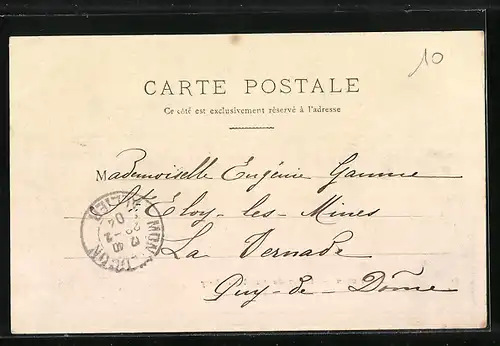 10
CARTE POSTALE
Ce côté est exclusivement réservé à l'adresse
Mademoiselle Eugénie Gamme
St Eloy-les-Mines
La Vernade
Puy-de-Dôme
MONTLUCON
ALLIER